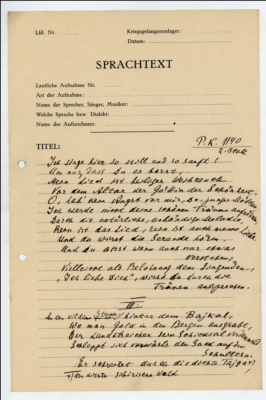 Lfd. Nr.
Kriegsgefangenenlager:
Datum:
SPRACHTEXT
Lautliche Aufnahme Nr.
Art der Aufnahme:
Name der Sprecher, Sänger, Musiker:
Welche Sprache bzw. Dialekt:
Name des Aufzeichners:
P.K. 1140
2. Blatt
TITEL:
Ich singe hier so still und so sanft!
Um nur, dass Du es hörst,
Mein Lied ist heiliger Weihrauch
Vor dem Altar der Göttin der Schönheit.
O, hab' kein Angst vor mir, Du junges Mädchen
Ich werde nicht deine schönen Träume
Durch die melodie
Rein ist das Lied, rein ist auch meine Liebe
Und du wirst die Serenade hören
Und Du wirst wenn auch nur etwas
verstehen,
Vielleicht als Belohnung dem Singenden,
"Ich liebe Dich", wirst du durch die
Tränen aussprechen.
III
In den wilden Steppen hinter dem Bajkal,
Wo man Gold in den Bergen ausgräbt,
Der Landstreicher sein Schicksal
Schleppt sich vorwärts den Sack auf den
Schultern.
Er schreitet durch die dichte Tajga x)
x) der weite sibirische Wald